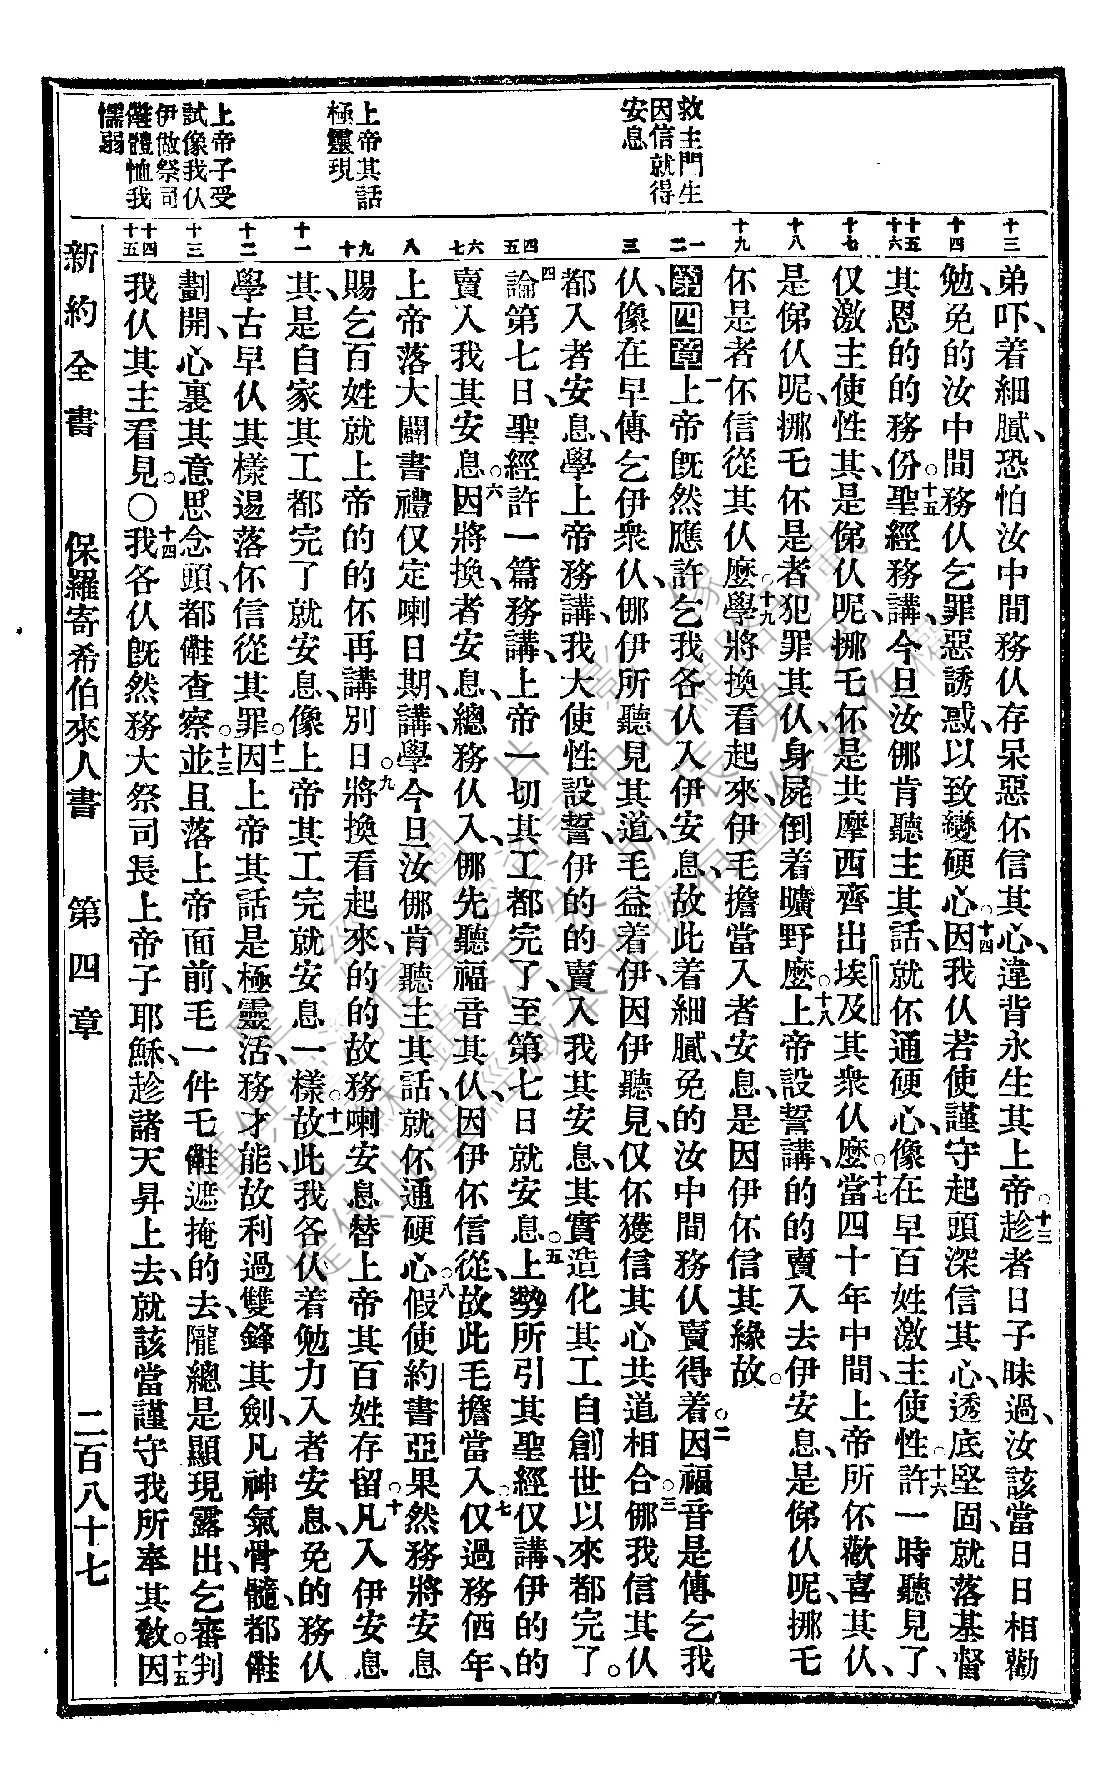 救主門生
因信就得
安息
上帝其話
極靈現
上帝子受
試像我仈
伊做祭司
儺體恤我
懦弱
十三
十四
十五
十六
十七
十八
十九
一
二
三
四
五
六
七
八
九
十
十一
十二
十三
十四
十五
弟吓、着細膩、恐怕汝中間務仈存呆惡伓信其心、違背永生其上帝。十三趁者日子昧過、汝該當日日相勸
勉、免的汝中間務仈乞罪惡誘惑、以致變硬心。十四因我仈若使謹守起頭深信其心、透底堅固、就落基督
其恩的的務份。十五聖經務講、今旦汝㑚肯聽主其話、就伓通硬心、像在早百姓激主使性許一時。十六聽見了、
仅激主使性其、是俤仈呢、挪乇伓是共摩西齊出埃及其衆仈麽。十七當四十年中間、上帝所伓歡喜其仈、
是俤仈呢、挪乇伓是者犯罪其仈、身屍倒着曠野麽。十八上帝設誓講、的的賣入去伊安息、是俤仈呢、挪乇
伓是者伓信從其仈麽。十九學將換看起來、伊乇擔當入者安息、是因伊伓信其緣故。
第四章 一上帝旣然應許乞我各仈入伊安息、故此着細膩、免的汝中間務仈賣得着。二因福音是傳乞我
仈、像在早傳乞伊衆仈、㑚伊所聽見其道、乇益着伊、因伊聽見、仅伓獲信其心共道相合。三㑚我信其仈
都入者安息、學上帝務講、我大使性設誓、伊的的賣入我其安息、其實造化其工、自創世以來都完了。
四論第七日、聖經許一篇務講、上帝一切其工都完了、至第七日就安息。五上勢所引其聖經仅講、伊的的
賣入我其安息。六因將換、者安息、總務仈入、㑚先聽福音其仈、因伊伓信從、故此乇擔當入。七仅過務価年、
上帝落大闢書禮、仅定喇日期、講、學今旦汝㑚肯聽主其話、就伓通硬心。八假使約書亞果然務將安息
賜乞百姓、就上帝的的伓再講別日。九將換看起來、的的故務喇安息、替上帝其百姓存留。十凡入伊安息
其、是自家其工都完了、就安息、像上帝其工完、就安息一樣。十一故此我各仈着勉力入者安息、免的務仈
學古早仈其樣、遏落伓信從其罪。十二因上帝其話、是極靈活、務才能、故利過雙鋒其劍、凡神氣骨髓、都儺
劃開、心裏其意思念頭、都儺查察。十三並且落上帝面前、乇一件乇儺遮掩的去、隴總是顯現露出、乞審判
我仈其主看見。〇十四我各仈旣然務大祭司長、上帝子耶穌、趁諸天昇上去、就該當謹守我所奉其敎。十五因
新約全書 保羅寄希伯來人書 第四章 二百八十七